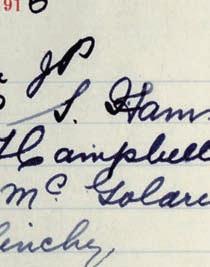 916
JP
S. Ham
Campbell
Mc Golari
linchy,